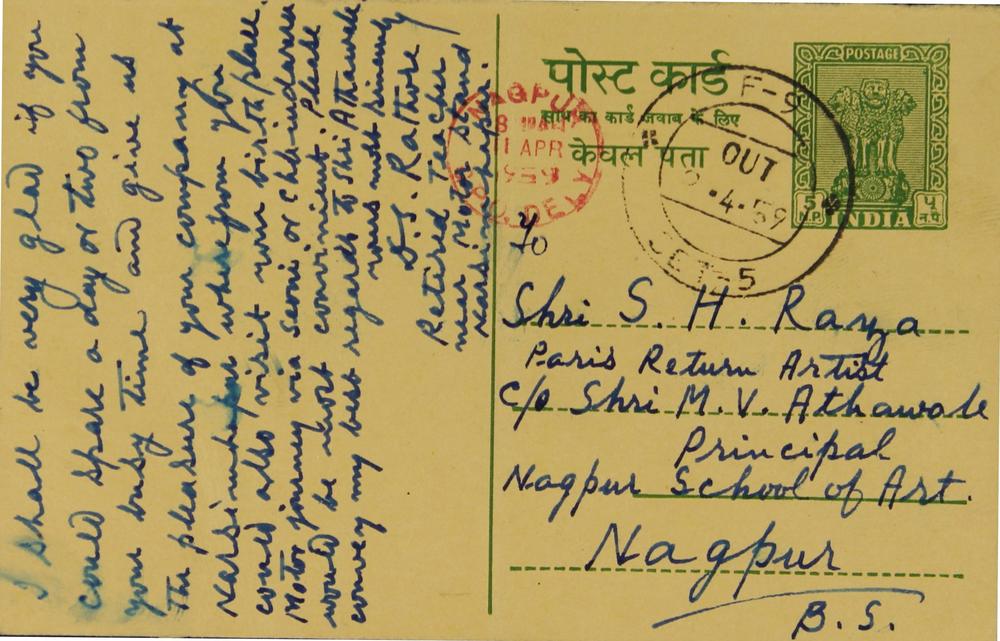 I shall be very glad if you
could spare a day or two from
your busy time and give us
The pleasure of your company at
Narsinghpur wherefrom you
could also visit your birth place.
Motor journey via Seoni or Chhindwara
would be most convinient. Please
convey my best regards to Shri Athawale
yours most sincerely
D. J. Rathore
Retired Teacher
near Motor stand
Narsinghpur.
पोस्ट कार्ड
साथ का कार्ड जवाब के लिए
केवल पता
POSTAGE
5 N.P.
INDIA
५ न.पै.
NAGPUR
11 APR
1959
DELY
F-9
OUT
.4.59
To
Shri S. H. Raza
Paris Return Artist
C/o Shri M. V. Athawale
Principal
Nagpur School of Art.
Nagpur
B. S.